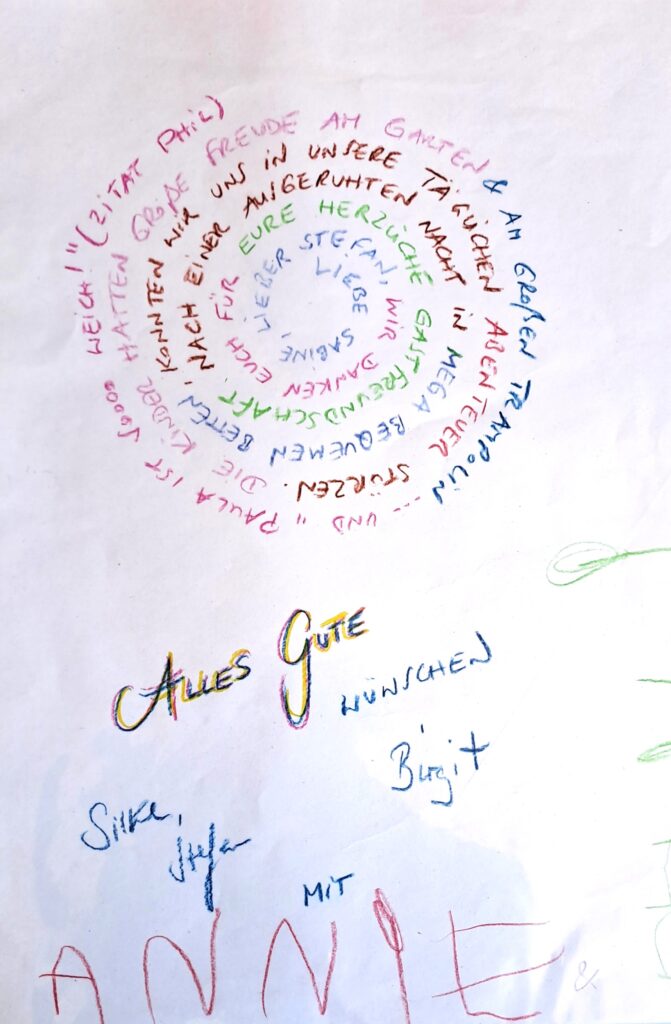 LIEBE SABINE, LIEBER STEFAN, WIR DANKEN EUCH FÜR EURE HERZLICHE GASTFREUNDSCHAFT. NACH EINER AUSGERUHTEN NACHT IN MEGA BEQUEMEN BETTEN, KONNTEN WIR UNS IN UNSERE TÄGLICHEN ABENTEUER STÜRZEN. DIE KINDER HATTEN GROßE FREUDE AM GARTEN & AM GROßEN TRAMPOLIN ... UND "PAULA IST SOOOO WEICH!" (ZITAT PHIL)
ALLES GUTE
WÜNSCHEN
Birgit
Silke, Stefan
MIT
ANNIE &